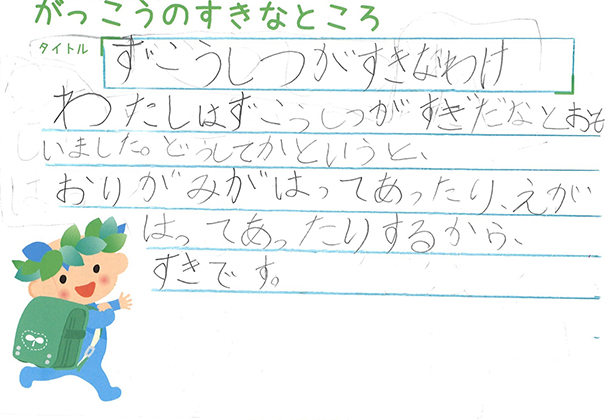 がっこうのすきなところ
タイトル
ずこうしつがすきなわけ
わたしはずこうしつがすぎだなとおも
いました。どうしてかというと、
おりがみがはってあったり、えが
はってあったりするから、
すきです。